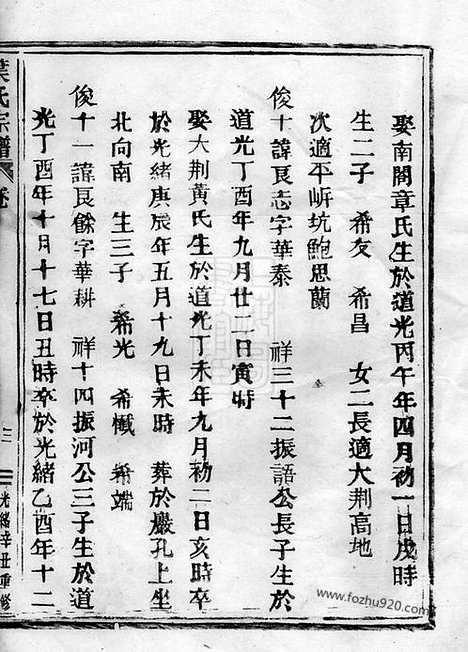 娶南閣章氏生於道光丙午年四月初一日戌時
生二子 希友 希昌 女二長適大荆高地
次適平岍坑鮑思蘭
俊十諱良志字華泰 祥三十二振語公長子生於
道光丁酉年九月廿二日寅時
娶大荆黃氏生於道光丁未年九月初二日亥時卒
於光緒庚辰年五月十九日未時 葬於巖孔上坐
北向南 生三子 希光 希懺 希端
俊十一諱良餘字華耕 祥十四振河公三子生於道
光丁酉年十月十七日丑時卒於光緒乙酉年十二
葉氏宗譜 卷 三 光緒辛丑重修
www.fozhu920.com